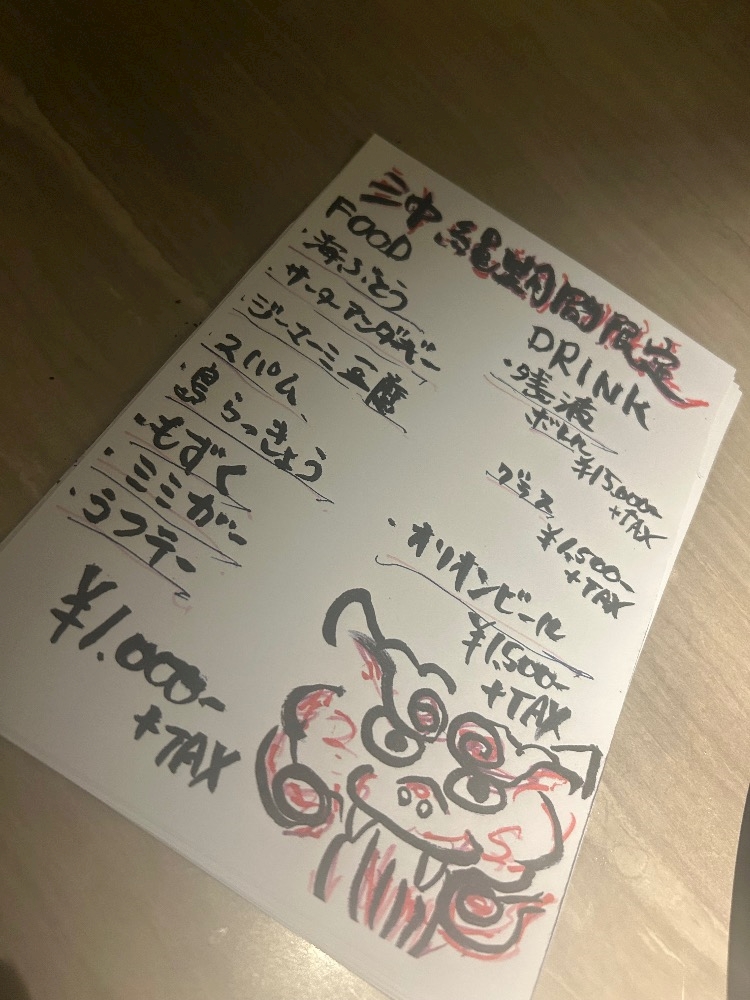 沖縄期間限定
FOOD
・海ぶどう
・サーターアンダギー
・ジーマーミ豆腐
・スパム
・島らっきょう
・もずく
・ミミガー
・ラフテー
¥1.000-
+TAX
DRINK
ボトル ¥15,000-
+TAX
グラス ¥1,500-
+TAX
・オリオンビール
¥1,500-
+TAX